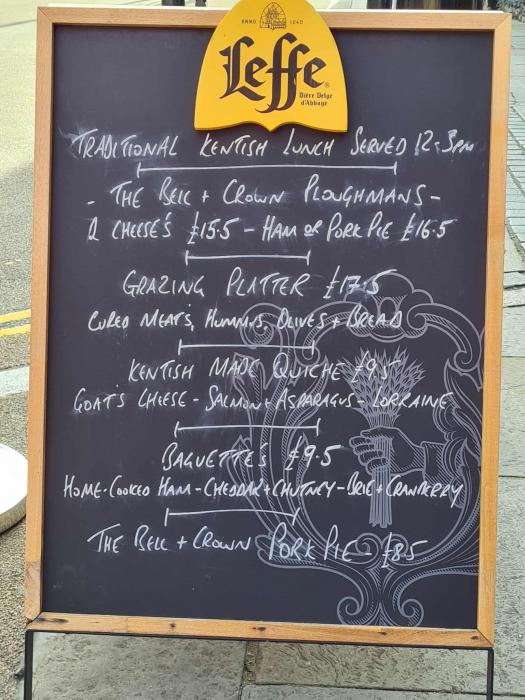 ANNO 1240
Leffe
Bière Belge
d'Abbaye
TRADITIONAL KENTISH LUNCH SERVED 12-3PM
- THE BELL + CROWN PLOUGHMANS -
2 CHEESE'S £15.5 - HAM OR PORK PIE £16.5
GRAZING PLATTER £17.5
CURED MEATS, HUMMUS, OLIVES + BREAD
KENTISH MADE QUICHE £9.5
GOAT'S CHEESE - SALMON + ASPARAGUS - LORRAINE
BAGUETTES £9.5
HOME-COOKED HAM - CHEDDAR + CHUTNEY - BRIE + CRANBERRY
THE BELL + CROWN PORK PIE - £8.5